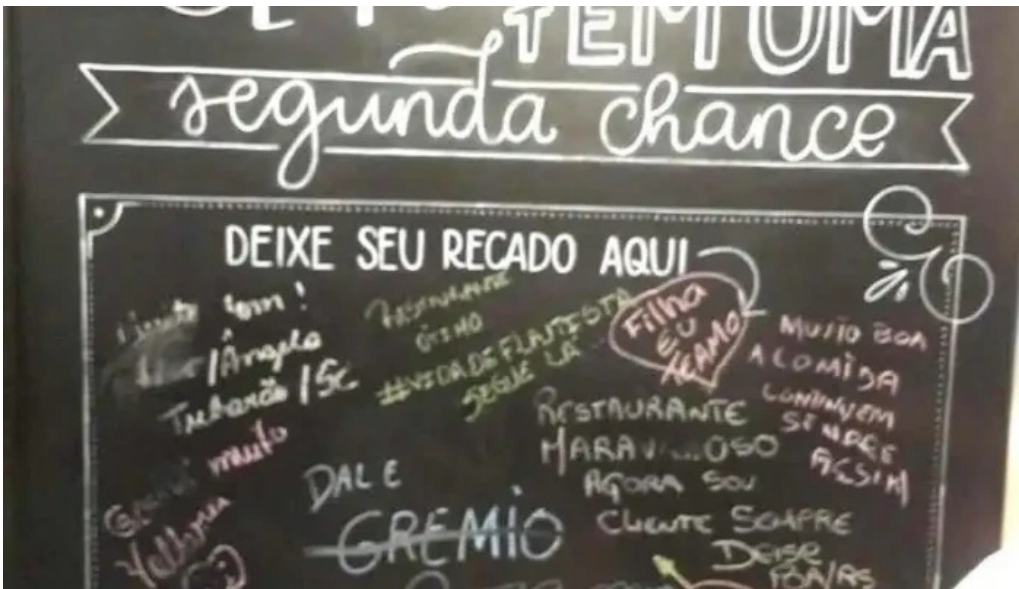 TEM UMA
segunda chance
DEIXE SEU RECADO AQUI
bom!
/Ângelo
Tubarão/SC
muito
RESTAURANTE
ÓTIMO
#VIDA DE FLAUTISTA
SEGUE LÁ
Filha
EU
TEAMO
MUITO BOA
A COMIDA
CONTINUEM
SEMPRE
ASSIM
RESTAURANTE
AGORA SOU
CLIENTE SEMPRE
DEISE
POA/RS
DALE
GREMIO